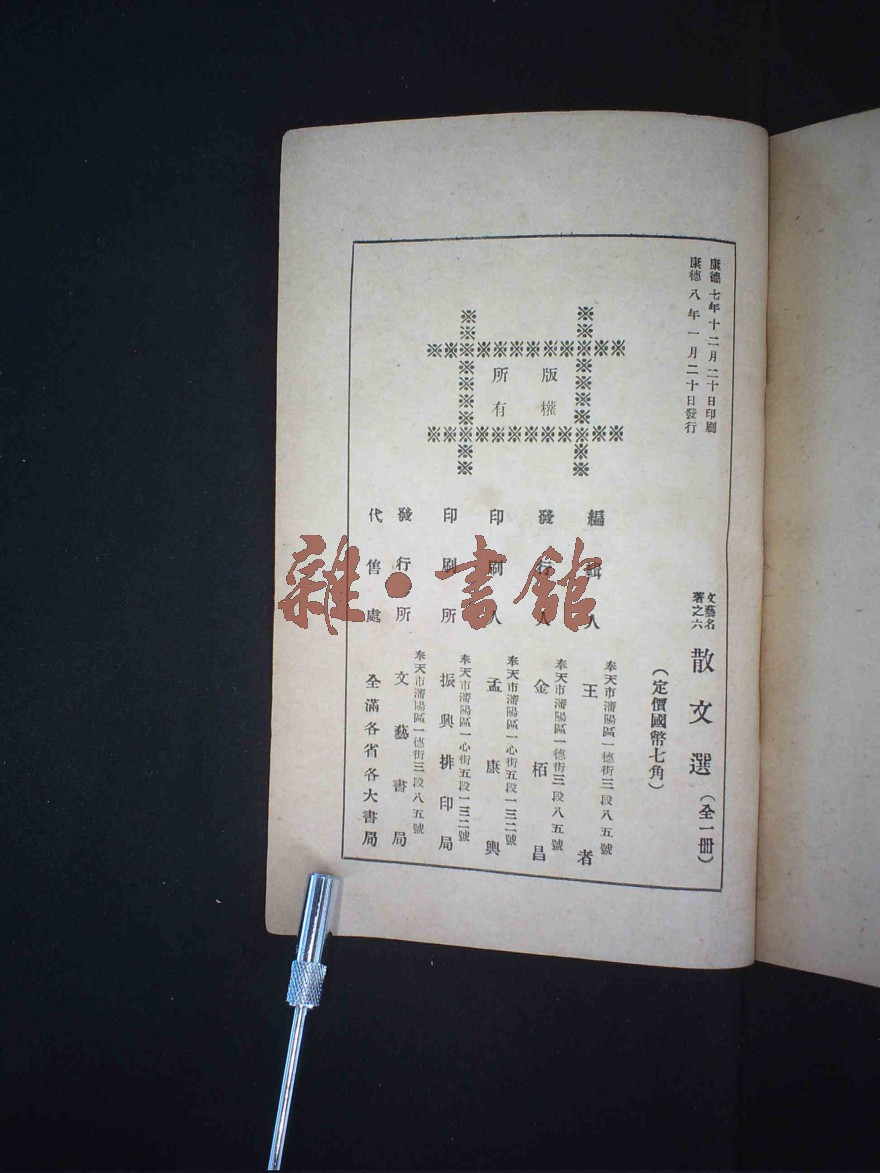 康德七年十二月二十日印刷
康德八年一月二十日發行
版權
所有
文藝名
著之六
散文選（全一冊）
（定價國幣七角）
編輯人
奉天市瀋陽區一德街三段八五號
王者
發行人
奉天市瀋陽區一德街三段八五號
金栢昌
印刷人
奉天市瀋陽區一心街五段一三二號
孟康興
印刷所
奉天市瀋陽區一心街五段一三二號
振興排印局
發行所
奉天市瀋陽區一德街三段八五號
文藝書局
代售處
全滿各省各大書局
雜·書館